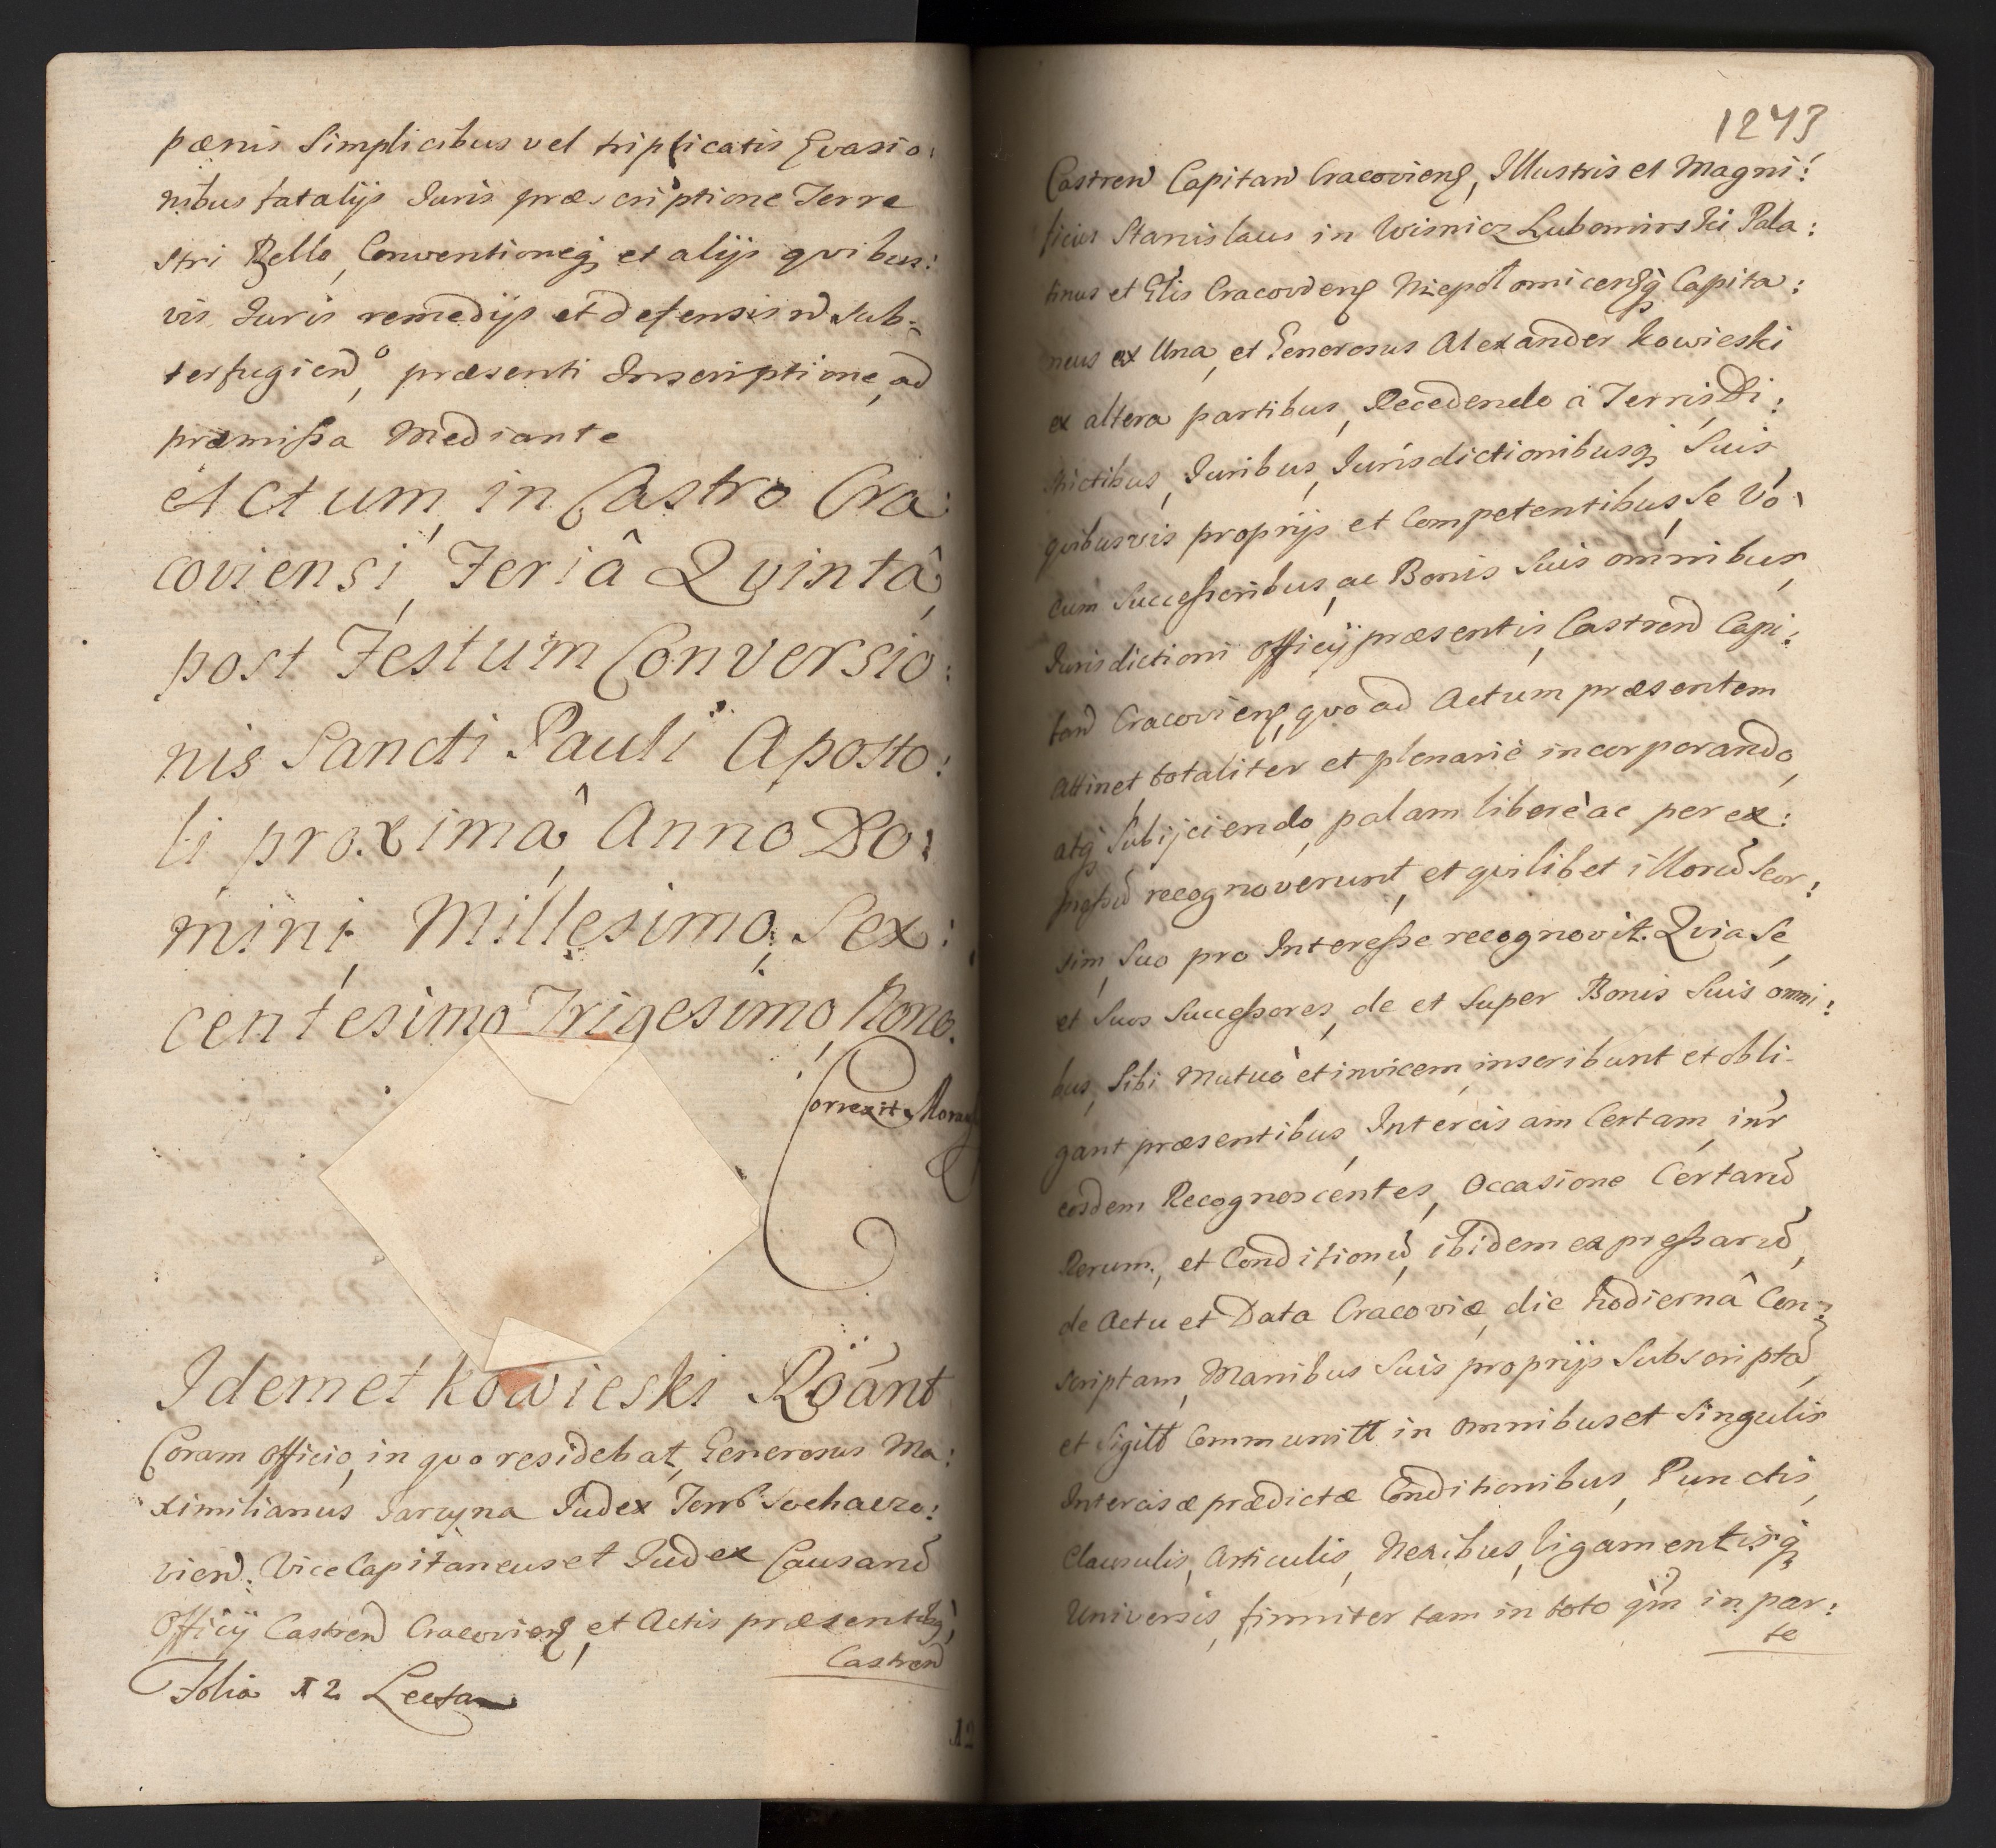 pænis Simplicibus vel triplicatis Evasio:
nibus fatalijs Juris præscriptione Terre
stri Bello, Conventioneq; et alijs qvibus:
vis Juris remedijs et defensiō sub-
terfugiendo, præsenti Inscriptione, ad
præmissa Mediante
Actum in Castro Cra:
coviensi, Feriâ Qvintâ
post Festum Conversio:
nis Sancti Pauli Aposto:
li proximâ, Anno Do:
mini, Millesimo, Sex:
centesimo Trigesimo Nono.
Correxit
Idem et Kowieski Rōant
Coram officio, in qvo residebat, Generosus Ma:
ximilianus Jarzyna Judex Terr: Sochaczo:
vieñ. Vice Capitaneus et Judex Causarū
Officij Castreñ Cracovieñ, et Actis præsentibus,
Castreñ
Folia 12 Lecta
12
1273
Castreñ Capitañ Cracovieñ, Illustris et Magni:
ficus Stanislaus in Wisnicz Lubomirski Pala:
tinus et Glis Cracovieñ Niepolomiceñq; Capita:
neus ex Una, et Generosus Alexander Kowieski
ex altera partibus, Recedendo à Terris, Di:
strictibus, Juribus, Jurisdictionibusq; Suis
qvibusvis proprijs et Competentibus, Se Vò
cum Successoribus, ac Bonis Suis omnibus,
Jurisdictioni officij præsentis, Castreñ Capi:
tañ Cracovieñ, qvo ad Actum præsentem
attinet totaliter et plenariè incorporando,
atq; Subijciendo, palam liberè ac per ex:
pressū recognoverunt, et qvilibet illorū Seor:
sim, Suo pro Interesse recognovit. Qvia Se,
et Suos Successores, de et Super Bonis Suis omni:
bus, Sibi Mutuò et invicem inscribunt et obli-
gant præsentibus, Intercisam Certam, inr̄
eosdem Recognoscentes, Occasione Certarū
Rerum, et Conditionū, ibidem expressarū,
de Actu et Data Cracoviæ, die hodiernâ Con:
scriptam, Manibus Suis proprijs Subscriptā,
et Sigillt Communitt in omnibus et Singulis
Intercisæ prædictæ Conditionibus, Punctis,
Clausulis, Articulis, Nexibus, ligamentisq;
Universis, firmiter tam in toto qm̄ in par:
te